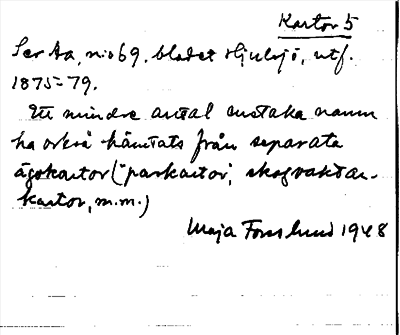 Kartor 5
Ser Aa, n:o 69. bladet Hjulsjö, utf.
1875-79.
Ett mindre antal enstaka namn
ha också hämtats från separata
ägokartor ("parkartor", skogvaktar-
kartor, m.m.)
Maja Forslund 1948